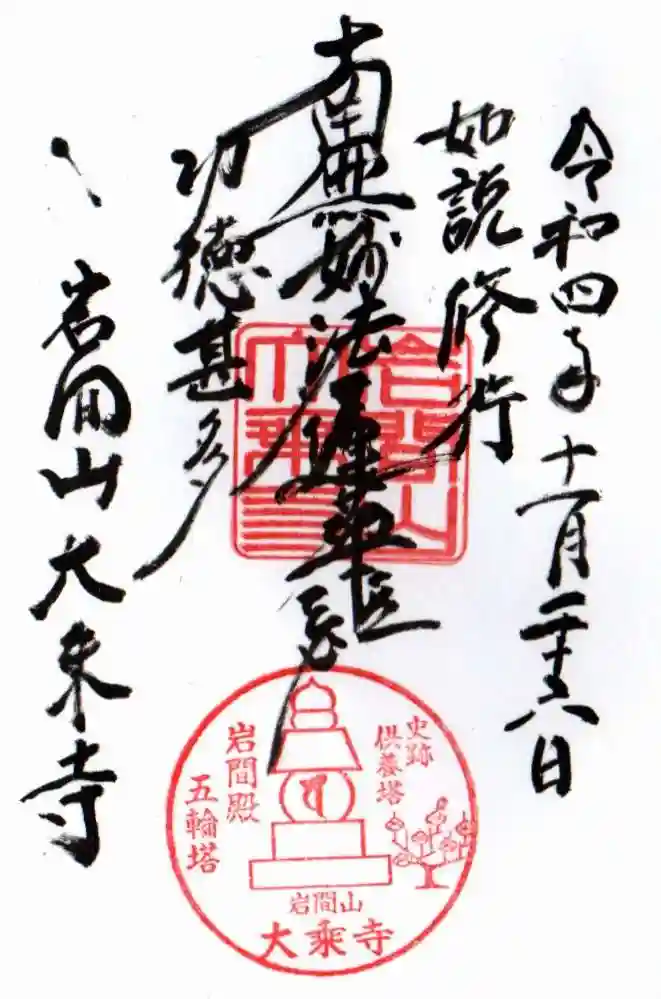 令和四年十一月二十六日
如説修行
南無妙法蓮華経
功徳甚多
岩間山大乗寺
岩間山
大乗寺
史跡
供養塔
岩間殿
五輪塔
岩間山
大乗寺